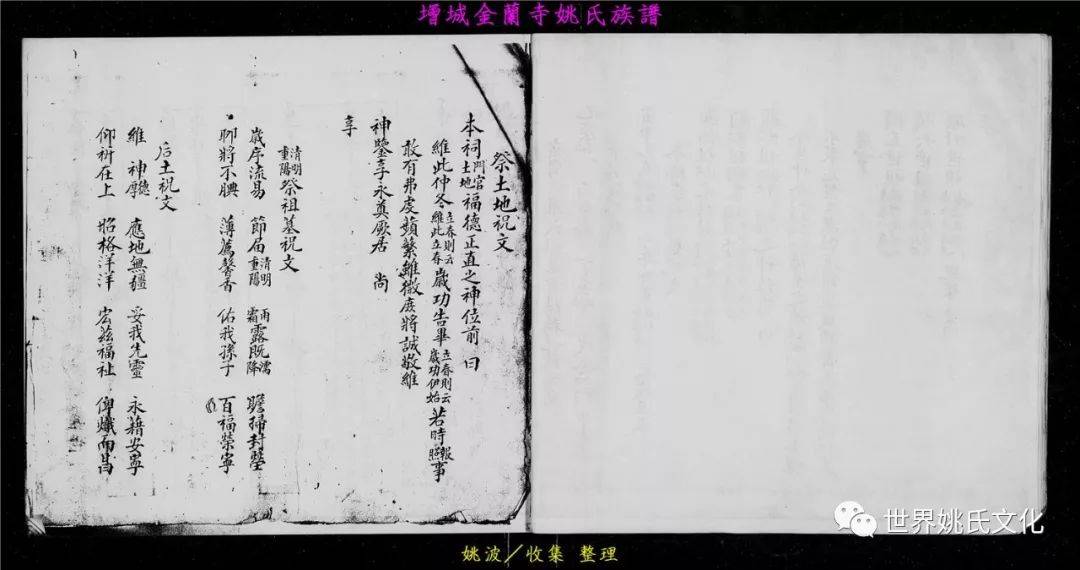 增城金蘭寺姚氏族譜
祭土地祝文
本祠門官土地福德正直之神位前曰
維此仲冬立春則云維此立春歲功告畢立春則云歲功伊始若時報照事
敢有弗虔蘋蘩雖微庶將誠敬維
神鑒享永奠厥居 尚
享
清明重陽祭祖墓祝文
歲序流易 節届清明重陽 雨霜露既濡降 瞻掃封塋
聊將不腆 薄薦馨香 佑我孫子 百福榮寧
后土祝文
維神聽厚 應地無疆 妥我先靈 永藉安寧
仰祈在上 昭格洋洋 宏茲福祉 俾熾而昌
世界姚氏文化
姚波／收集 整理